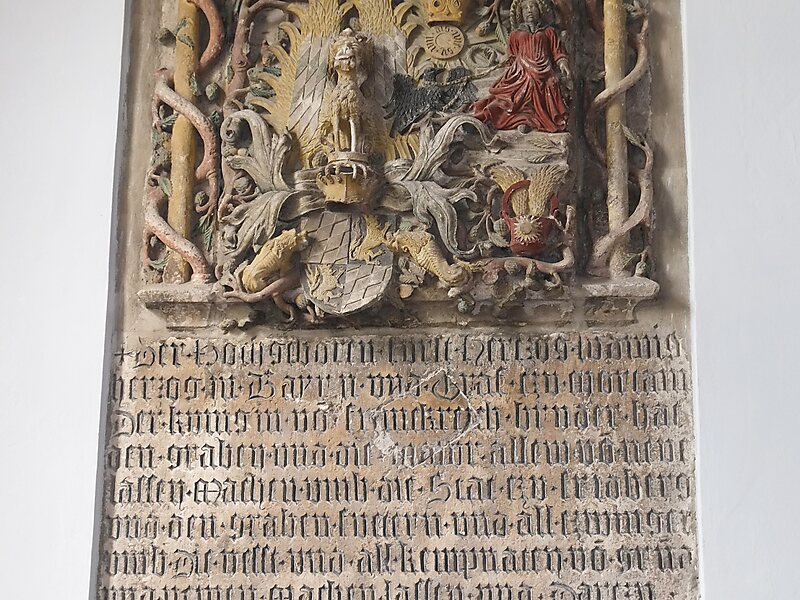 Der · Hochgeboren · fürst · Hertzog · Ludwig
herzog · in · Bayrn · vnd · Graf · czu · Mortani
Der · kunigin · vō · franckrych · bruder · hat
den · graben · vnd · die · mawr · allew · vō · newe
lassen · Machen · vmb · die · Stat · czu · fridberg
vnd · den · graben · futtern · vnd · all · czwinger
vmb · die · vesst · vnd · all · kempnaten · vō · grūd
newen · Machen · lassen · vnd · Daryn